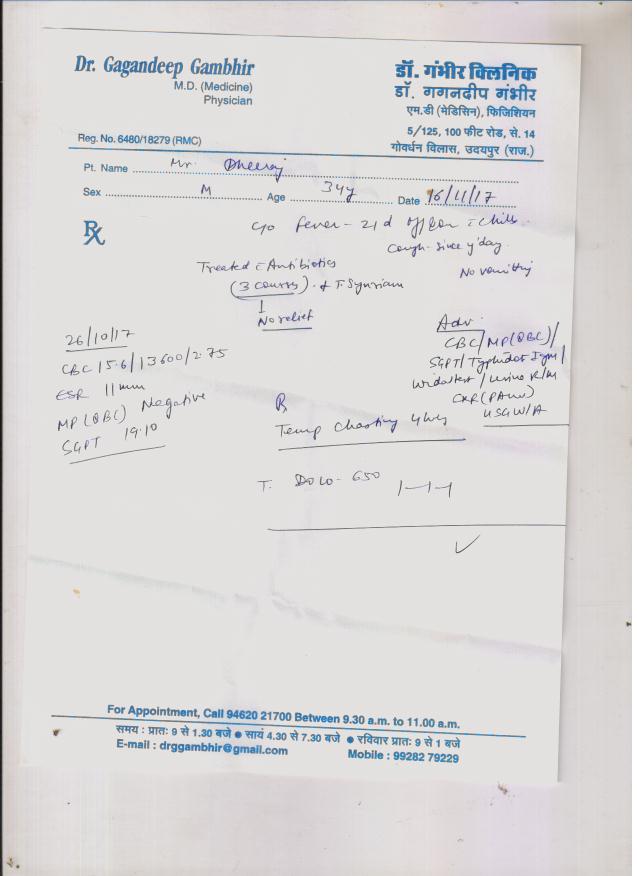 Dr. Gagandeep Gambhir
M.D. (Medicine)
Physician
Reg. No. 6480/18279 (RMC)
डॉ. गंभीर क्लिनिक
डॉ. गगनदीप गंभीर
एम.डी (मेडिसिन), फिजिशियन
5/125, 100 फीट रोड, से. 14
गोवर्धन विलास, उदयपुर (राज.)
Pt. Name Mr. Dheeraj
Sex M Age 34y Date 16/11/17
Rx
c/o fever - 21 d off & on c chills
Cough - since y'day
No vomiting
Treated c Antibiotics
(3 courses) + T.
No relief
26/10/17
CBC 15.6/13600/2.75
ESR 11 mm
MP (QBC) Negative
SGPT 19.10
Adv
CBC/MP(QBC)/
SGPT/Typhidot IgM/
Widal test/Urine R/M
CXR (PA view)
USG W/A
Rx
Temp Charting 4 hrly
T. DOLO - 650 1-1-1
For Appointment, Call 94620 21700 Between 9.30 a.m. to 11.00 a.m.
समय : प्रातः 9 से 1.30 बजे ● सायं 4.30 से 7.30 बजे ● रविवार प्रातः 9 से 1 बजे
E-mail : drggambhir@gmail.com Mobile : 99282 79229